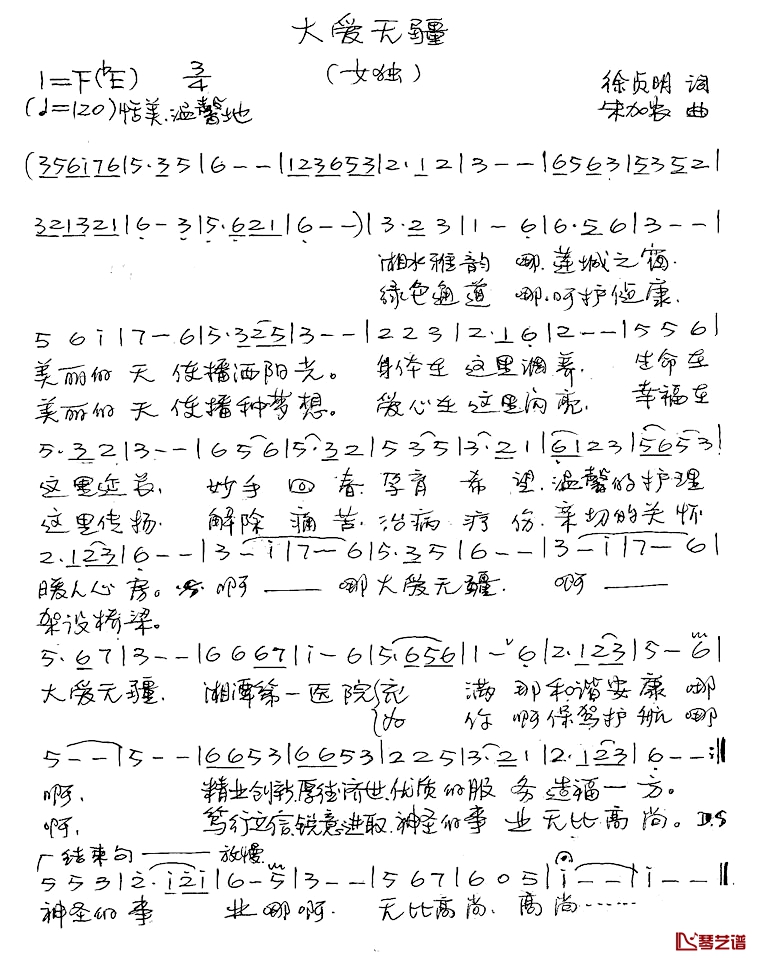 大爱无疆
1=F(♭E) 3/4 (女独) 徐贞明 词
(♩=120)恬美.温馨地 宋加农 曲
(356i76|5·35|6--|123653|2·12|3--|6563|5352|
321321|6-3|5·621|6--)|3·23|1-6|6·56|3--|
湘水雅韵 哪.莲城之
绿色通道 哪.呵护健康.
56i|7-6|5·325|3--|223|2·16|2--|556|
美丽的天使播洒阳光。 身体在这里调养. 生命在
美丽的天使播种梦想。 爱心在这里闪亮. 幸福在
5·32|3--|656|5·32|535|3·21|6123|5653|
这里延长. 妙手回春.孕育希望.温馨的护理
这里传扬. 解除痛苦.治病疗伤.亲切的关怀
2·123|6--|3-i|7-6|5·35|6--|3-i|7-6|
暖人心房。 啊——哪大爱无疆. 啊——
架设桥梁。
5·67|3--|6667|i-6|5·656|1-6|2·123|5-6|
大爱无疆. 湘潭第一医院{充 满那和谐安康哪
{为 你啊保驾护航哪
5--|5--|6653|6653|225|3·21|2·123|6--:||
啊. 精业创新.厚德济世.优质的服务造福一方。
啊. 笃行立信.锐意进取.神圣的事业无比高尚。D.S
结束句——放慢
553|2·i2i|6-5|3--|567|605|i--|i--||
神圣的事 业哪啊. 无比高尚.高尚……
琴艺谱